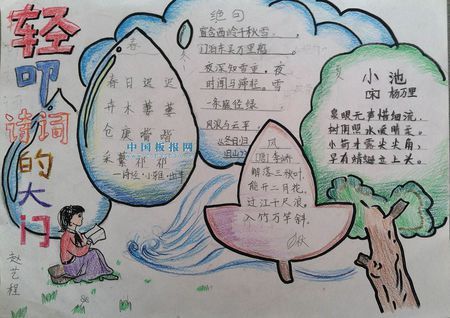 轻叩诗词的大门
春
春日迟迟
卉木萋萋
仓庚喈喈
采蘩祁祁
—诗经·小雅·出车
中国板报网
冬
绝句
窗含西岭千秋雪
门泊东吴万里船
夜深知雪重，夜
时闻
夏
小池
宋 杨万里
泉眼无声惜细流，
树阴照水爱晴柔。
小荷才露尖尖角，
早有蜻蜓立上头。
风
(唐)李峤
解落三秋叶，
能开二月花。
过江千尺浪，
入竹万竿斜。
秋
赵艺程